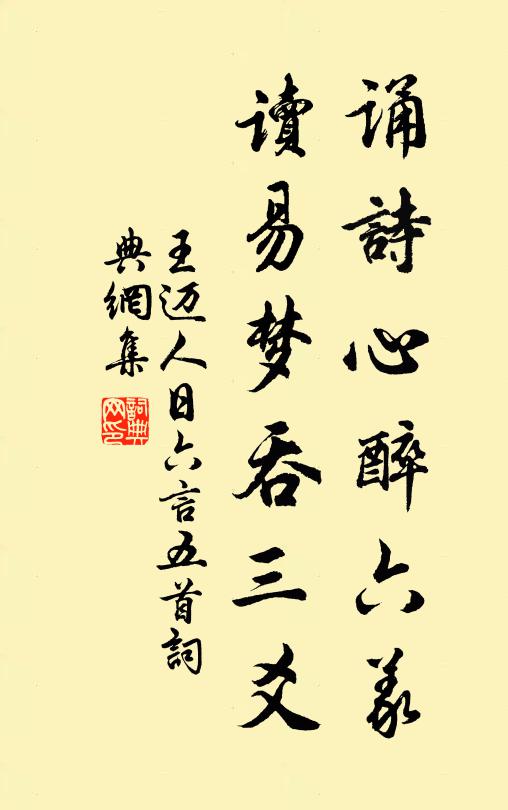 诵詩心醉六义
讀易梦吞三爻
王迈人日六言五首詞
典網集
詞典网印